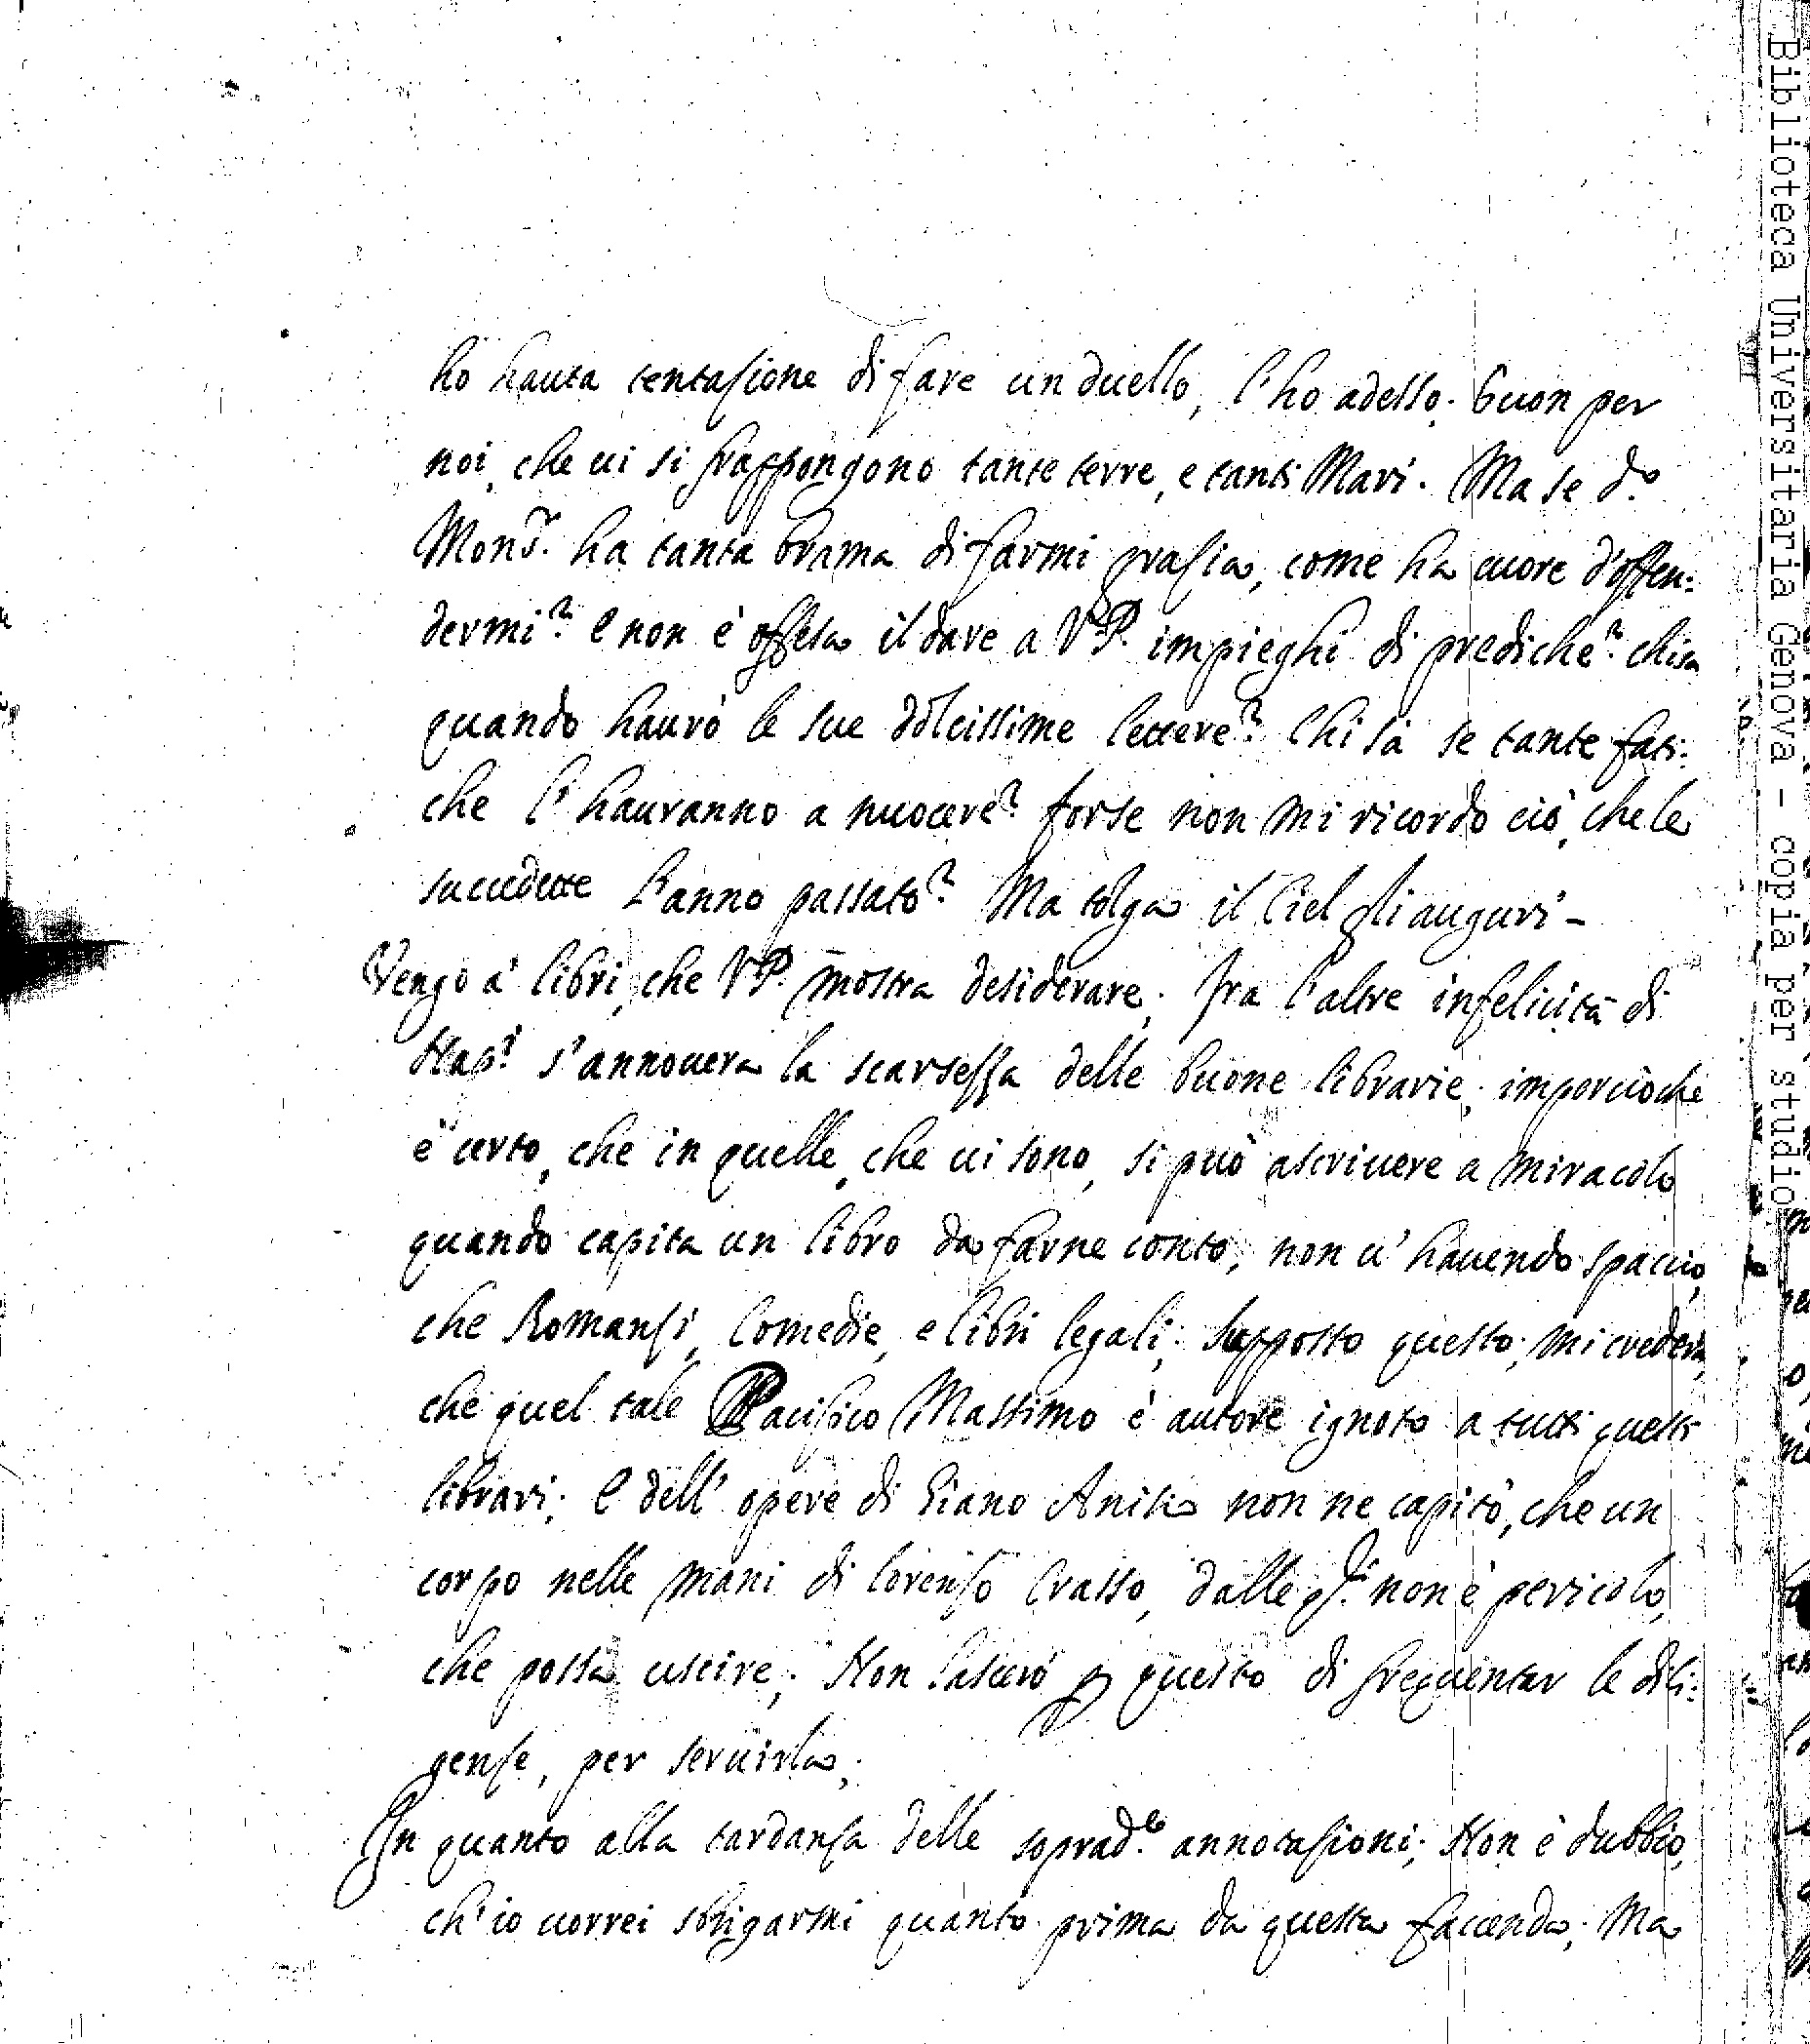 ho hauta tentasione di fare un duello, l'ho adesso. Buon per
noi, che ui si frappongono tante terre, e tanti Mari. Ma se d.º
Mons.r ha tanta brama di farmi grasia, come ha cuore d'offen:
dermi? E non è offesa il dare a V.P. impieghi di prediche? chi sa
quando haurò le sue dolcissime lettere? Chi sà se tante fati:
che l'hauranno a nuocere? forse non mi ricordo ciò, che le
succedette l'anno passato? Ma tolga il Ciel gli auguri -
Vengo a' libri, che V.P. mostra desiderare. fra l'altre infelicità di
Nap.i s'annouera la scarsessa delle buone librarie; imperciòche
è certo, che in quelle, che ui sono, si può ascriuere a miracolo
quando capita un libro da farne conto, non u' hauendo spaccio,
che Romansi, Comedie, e libri legali; supposto questo, mi crederà,
che quel tale Pacifico Massimo è autore ignoto a tutti questi
librari; E dell' opere di Giano Anisio non ne capitò, che un
corpo nelle mani di Lorenso Crasso, dalle q.li non è pericolo,
che possa uscire; Non lascerò p questo di frequentar le dili:
gense, per seruirla;
In quanto alla tardansa delle soprad.e annotasioni; Non è dubbio,
ch'io uorrei sbrigarmi quanto prima da questa facenda; Ma
Biblioteca Universitaria Genova - copia per studio